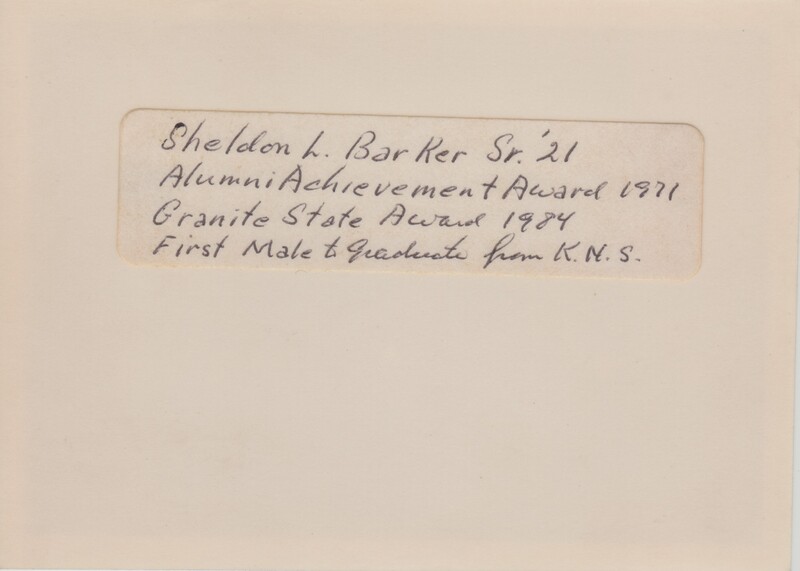 Sheldon L. Barker Sr. '21
Alumni Achievement Award 1971
Granite State Award 1984
First Male to Graduate from K.N.S.